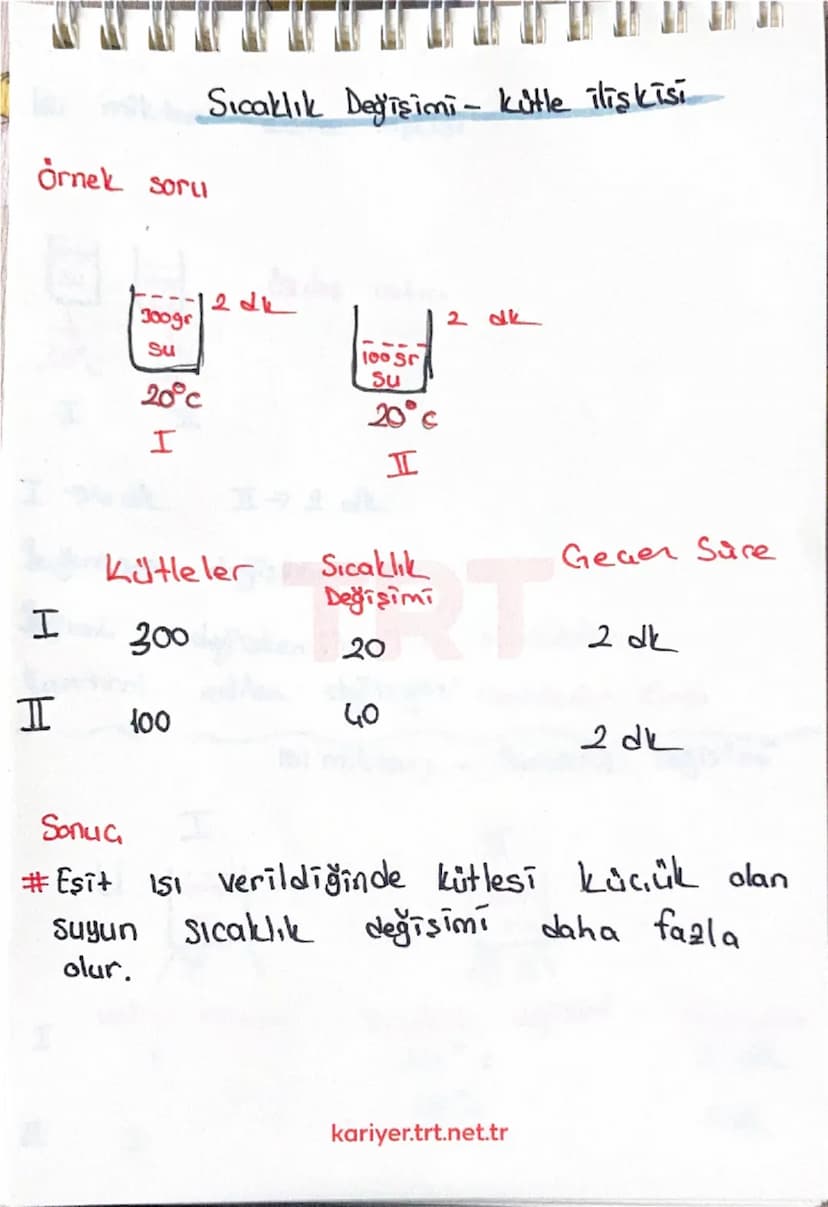 Sıcaklık Değişimi - kütle ilişkisi
Örnek soru
300gr 2 dk
su
20°C
I
2 dk
100 gr
su
20°C
II
Kütleler Sıcaklık Değişimi Geçen Süre
I 300 20 2 dk
II 100 40 2 dk
TRT
Sonuç
# Eşit ısı verildiğinde kütlesi küçük olan
suyun sıcaklık değişimi daha fazla
olur.
kariyer.trt.net.tr